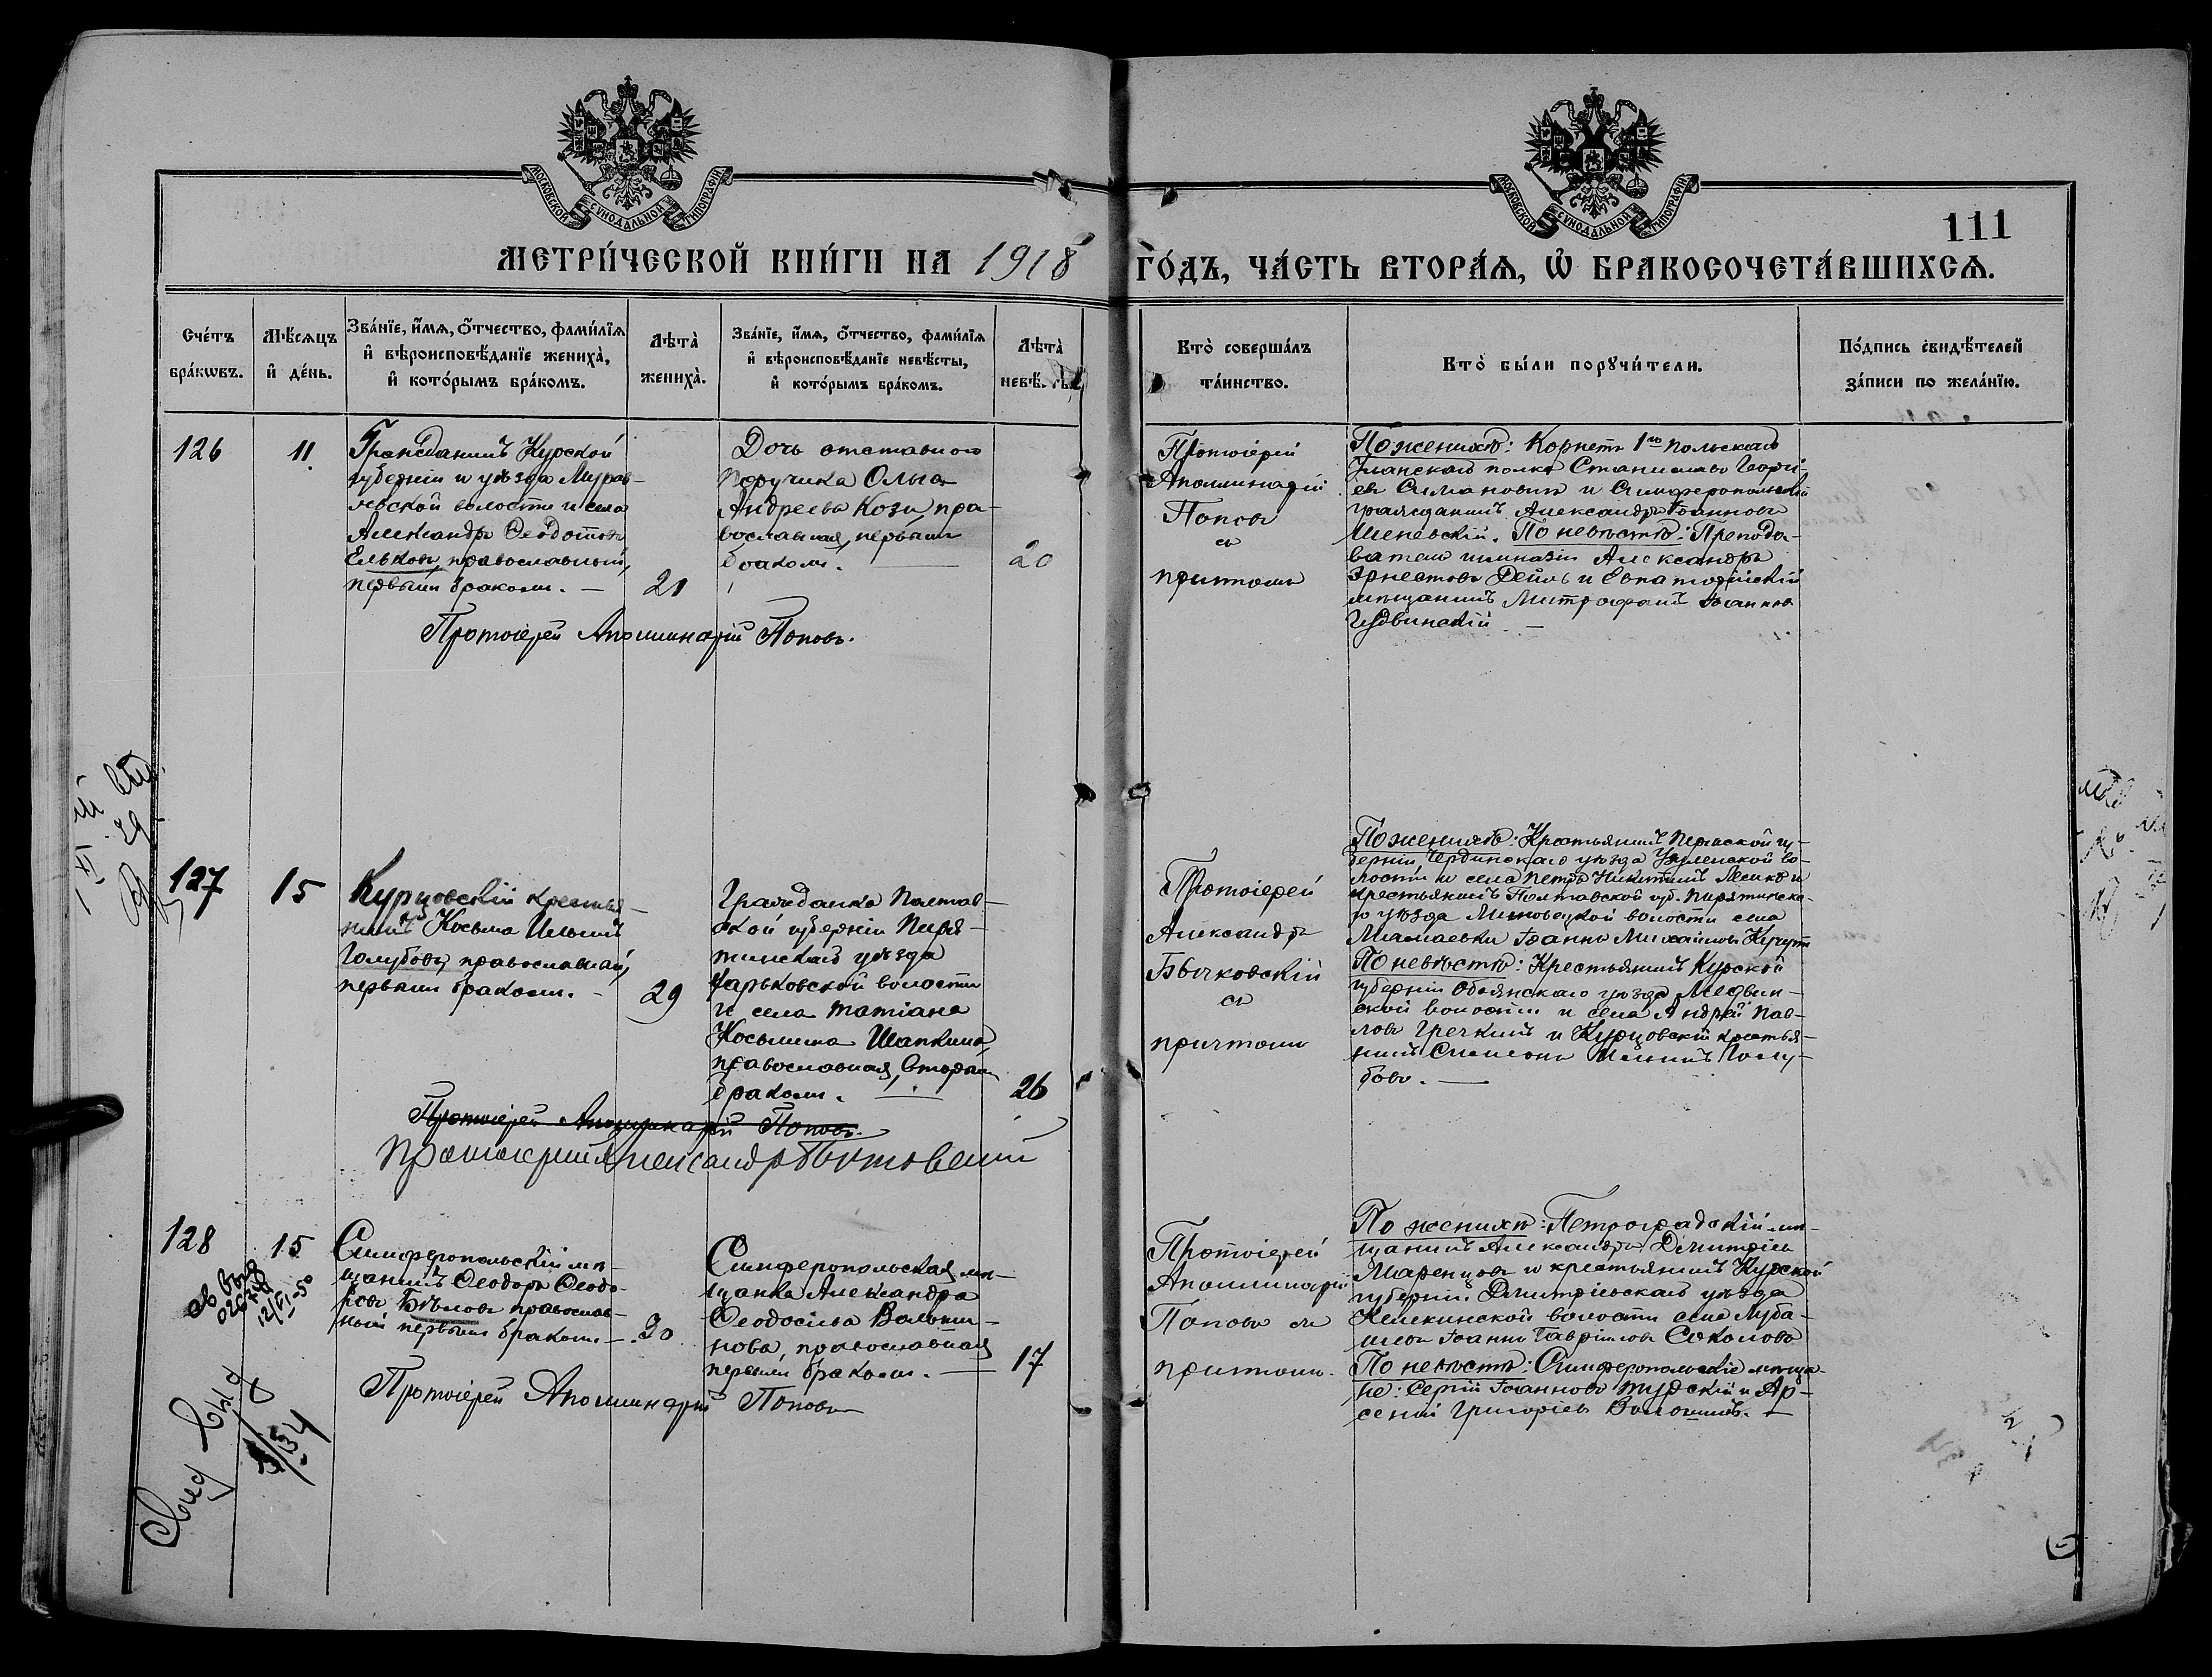 МОСКОВСКОЙ СѴНОДАЛЬНОЙ ТИПОГРАФІИ
МОСКОВСКОЙ СѴНОДАЛЬНОЙ ТИПОГРАФІИ
111
МЕТРИ́ЧЕСКОЙ КНИ́ГИ НА 1918 ГО́ДЪ, ЧА́СТЬ ВТОРА́Ѧ, Ѽ БРАКОСОЧЕТА́ВШИХСѦ.
Сче́тъ
бра́кѡвъ.
Мѣ́сѧцъ
и҆ де́нь.
Зва́нїе, и҆́мѧ, ѻ҆́тчество, фами́лїѧ
и҆ вѣроисповѣ́данїе жениха̀,
и҆ кото́рымъ бра́комъ.
Лѣта̀
жениха̀.
Зва́нїе, и҆́мѧ, ѻ҆́тчество, фами́лїѧ
и҆ вѣроисповѣ́данїе невѣ́сты,
и҆ кото́рымъ бра́комъ.
Лѣта̀
невѣ́сты.
Кто̀ соверша́лъ
та́инство.
Кто̀ бы́ли порꙋчи́тели.
По́дпись свидѣ́телей
за́писи по жела́нїю.
126
11
Гражданинъ Курской
губерніи и уѣзда Мурав-
левской волости и села
Александръ Ѳеодотовъ
Ельковъ, православный,
первымъ бракомъ. —
21
Дочь отставного
поручика Ольга
Андреева Кози, пра-
вославная, первымъ
бракомъ. —
20
Протоіерей Аполлинарій Поповъ.
Протоіерей
Аполлинарій
Поповъ
съ
причтомъ
По женихѣ: Корнетъ 1го польскаго
Уланскаго полка Станиславъ Георгі-
евъ Симановичъ и Симферопольскій
гражданинъ Александръ Іоанновъ
По невѣстѣ: Препода-
ватель гимназіи Александръ
Эрнестовъ Дейль и Евпаторійскій
мѣщанинъ Митрофанъ Іоанновъ
127
15
Курцовскій крестья-
нинъ Косьма Ильинъ
Голубовъ, православный,
первымъ бракомъ. —
29
Гражданка Полтав-
ской губерніи Пиря-
тинскаго уѣзда
Харьковской волости
и села Татіана
Косьмина Шапкина,
православная, вторымъ
бракомъ. —
26
Протоіерей Аполлинарій Поповъ.
Протоіерей Александръ Бычковскій
Протоіерей
Александръ
Бычковскій
съ
причтомъ
По женихѣ: Крестьянинъ Пермской гу-
берніи, Чердинскаго уѣзда волости и села Петръ Никитинъ
крестьянинъ Полтавской губ. Пирятинска-
го уѣзда волости села
Мамаевки Іоаннъ Михайловъ
По невѣстѣ: Крестьянинъ Курской
губерніи Обоянскаго уѣзда Медвен-
ской волости и села Андрей Пав-
ловъ Гречкинъ и Курцовскій крестья-
нинъ Симеонъ Ильинъ Голу-
бовъ. —
128
15
Симферопольскій мѣ-
щанинъ Ѳеодоръ Ѳеодо-
ровъ Бѣловъ православ-
ный первымъ бракомъ. —
30
Симферопольская мѣ-
щанка Александра
Ѳеодосіева Волоши-
нова, православная
первымъ бракомъ. —
17
Протоіерей Аполлинарій Поповъ
Протоіерей
Аполлинарій
Поповъ съ
причтомъ.
По женихѣ: Петроградскій мѣ-
щанинъ Александръ Дмитріевъ
Маренцовъ и крестьянинъ Курской
губерніи. Дмитріевскаго уѣзда
волости села
Іоаннъ Гавріиловъ Соколовъ
По невѣстѣ: Симферопольскіе мѣща-
не: Сергій Іоанновъ и Ар-
сеній Григоріевъ Волошинъ. —
Свид выд